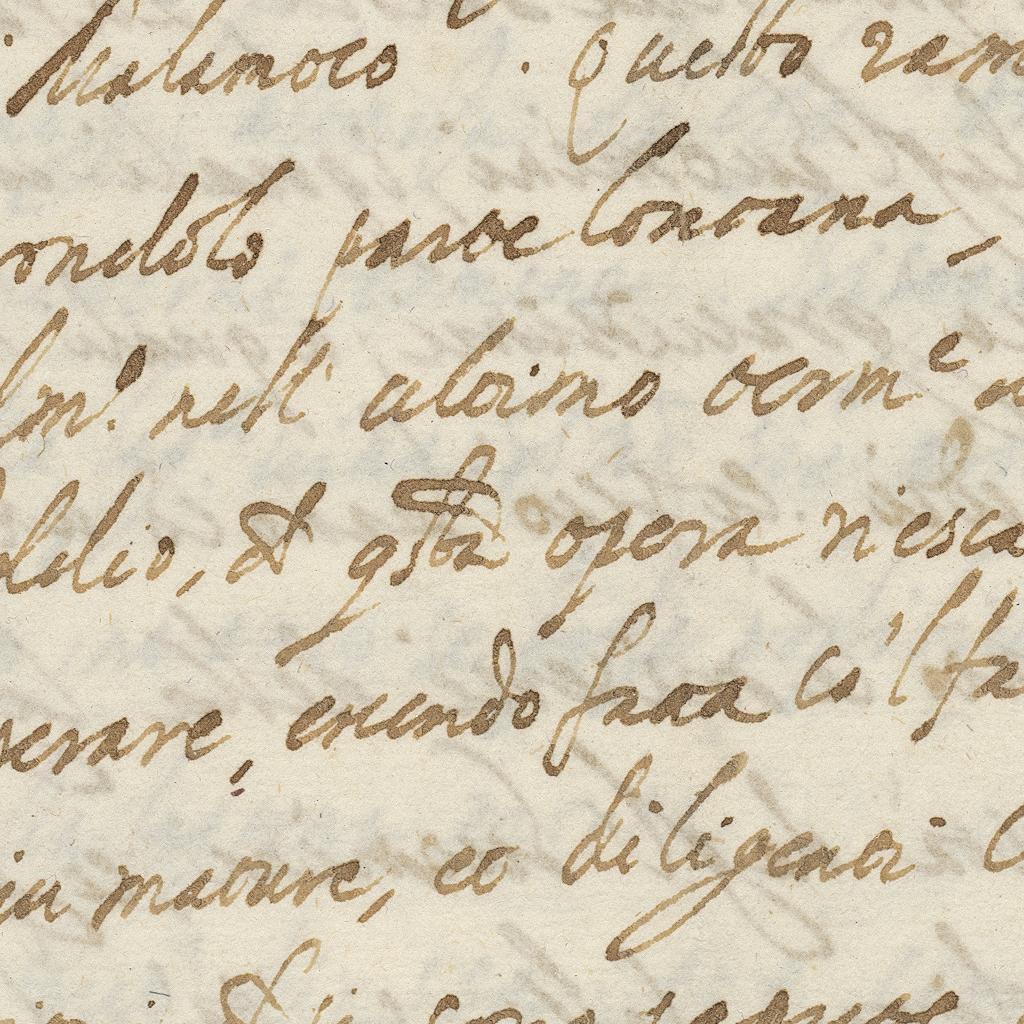 Malamoco . Questo ram
ondolo parte lontana,
nell' ultimo term.e
, et qsta opera riesca
perare, essendo fatta co'l fa
più mature, et diligenti